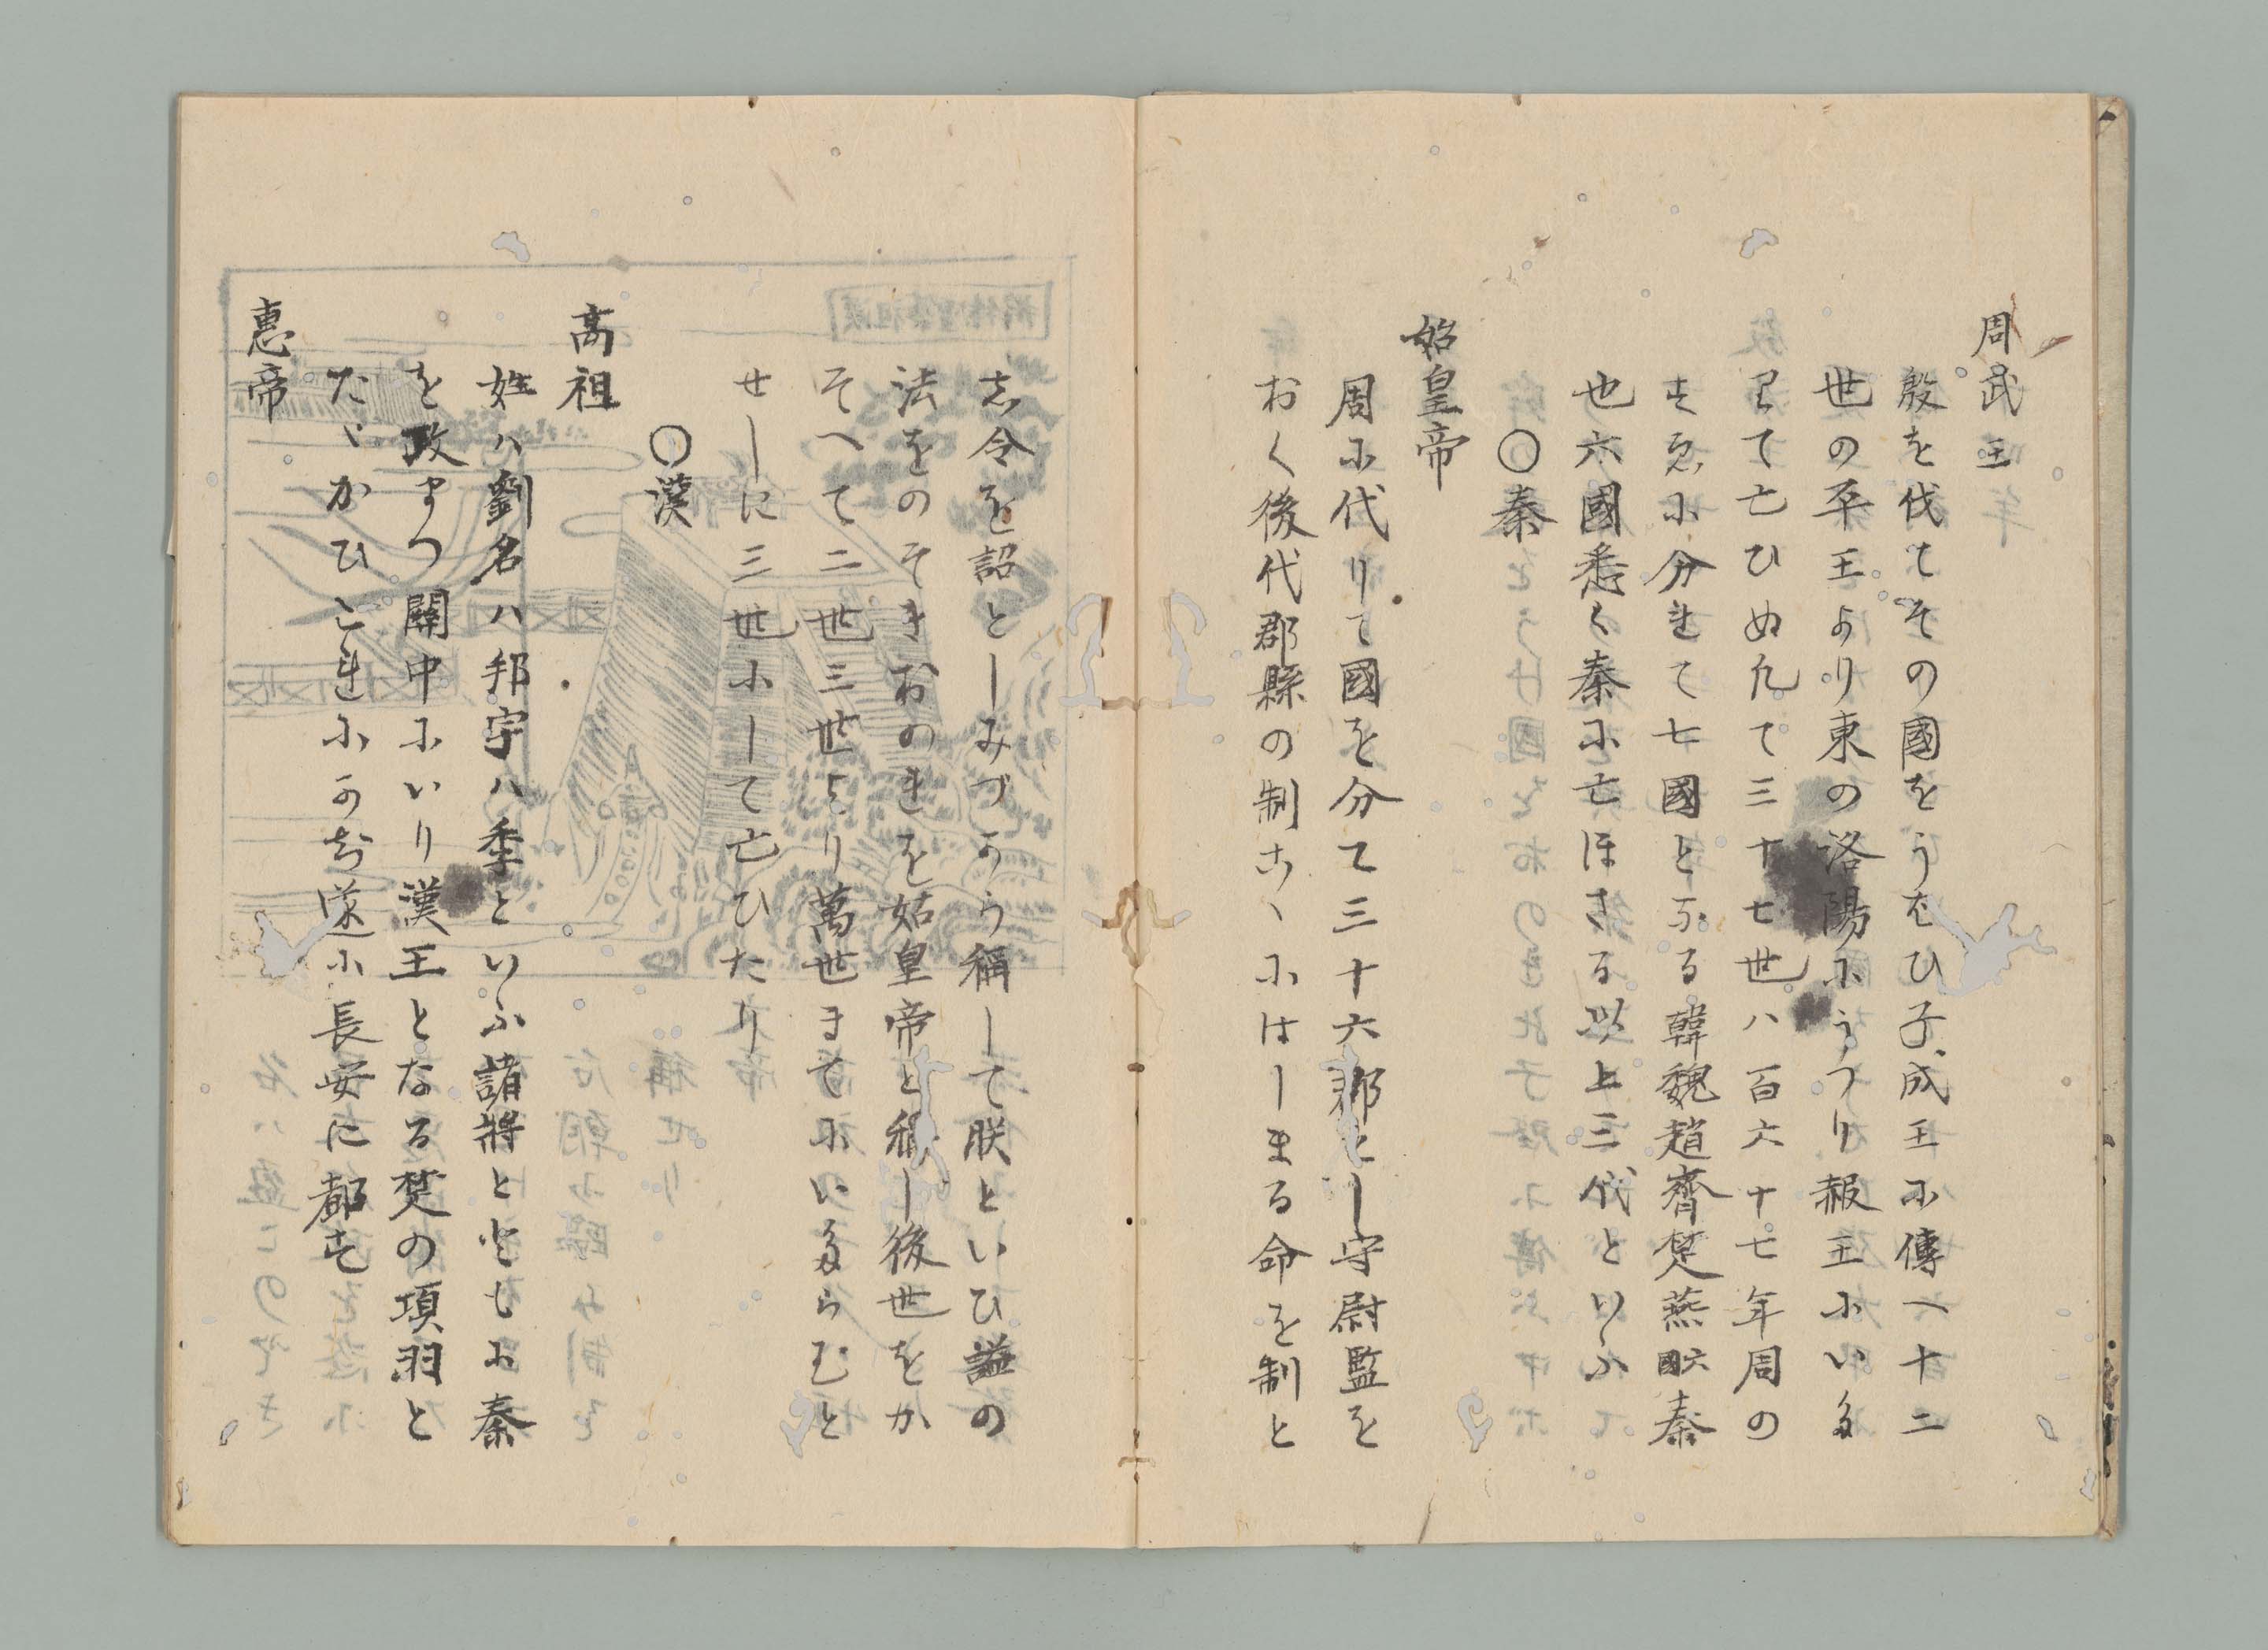 周武王
殷を伐てその國をうばひ子成王に傳へ十二
世の平王より東の洛陽にうつり赧王にいた
りて亡ひぬ凡て三十七世八百六十七年周の
すゑに分れて七國となる韓魏趙齊楚燕秦
也六國悉く秦に亡ほさる以上三代といふ
〇秦
始皇帝
周に代りて國を分て三十六郡とし守尉監を
おく後代郡縣の制こゝにはしまる命を制と
し令を詔としみづから稱して朕といひ謚の
法をのぞきおのれを始皇帝と稱し後世をか
そへて二世三世より萬世まてにいたらむと
せしに三世にして亡ひたり
〇漢
高祖
姓ハ劉名ハ邦字ハ季といふ諸將とともに秦
を攻まつ關中にいり漢王となる楚の項羽と
たゝかひこれにかち遂に長安に都す
惠帝